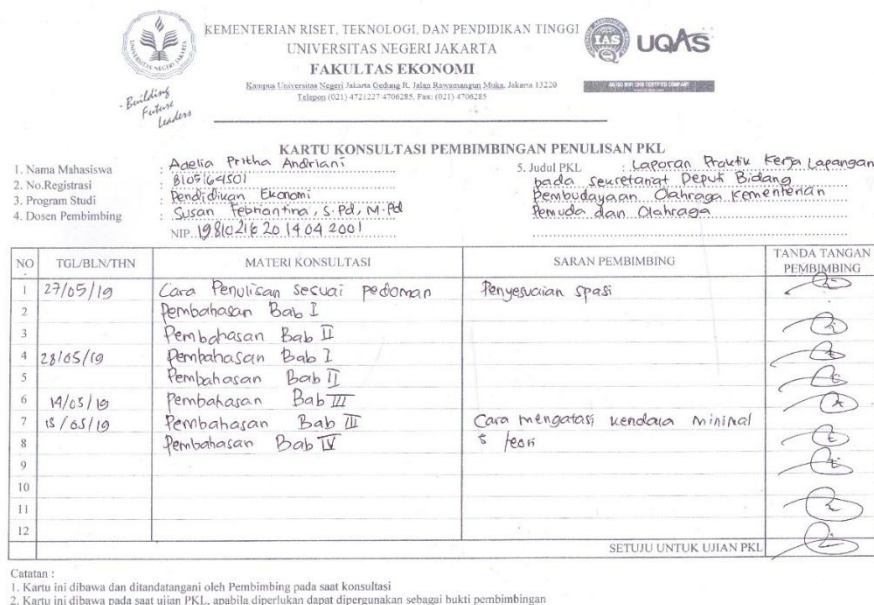 KEMENTERIAN RISET, TEKNOLOGI, DAN PENDIDIKAN TINGGI
UNIVERSITAS NEGERI JAKARTA
FAKULTAS EKONOMI
Kampus Universitas Negeri Jakarta Gedung R, Jalan Rawamangun Muka, Jakarta 13220
Telepon (021) 4721227/4706285, Fax: (021) 4706285
UNIVERSITAS NEGERI JAKARTA
- Building
Future
Leaders
IAS
UQAS
KARTU KONSULTASI PEMBIMBINGAN PENULISAN PKL
1. Nama Mahasiswa : Adelia Pritha Andriani
2. No.Registrasi : 8105164501
3. Program Studi : Pendidikan Ekonomi
4. Dosen Pembimbing : Susan Febriantina, S.Pd, M.Pd
NIP. 19810216 20 1404 2001
5. Judul PKL : Laporan Praktik Kerja Lapangan
pada Sekretariat Deputi Bidang
Pembudayaan Olahraga Kementerian
Pemuda dan Olahraga
NO. TGL/BLN/THN MATERI KONSULTASI SARAN PEMBIMBING TANDA TANGAN PEMBIMBING
1 27/05/19 Cara Penulisan sesuai pedoman Penyesuaian spasi
2 Pembahasan Bab I
3 Pembahasan Bab II
4 28/05/19 Pembahasan Bab I
5 Pembahasan Bab II
6 14/05/19 Pembahasan Bab III
7 15/05/19 Pembahasan Bab III Cara mengatasi kendala minimal
8 Pembahasan Bab IV 5 teori
9
10
11
12
SETUJU UNTUK UJIAN PKL
Catatan :
1. Kartu ini dibawa dan ditandatangani oleh Pembimbing pada saat konsultasi
2. Kartu ini dibawa pada saat ujian PKL, apabila diperlukan dapat dipergunakan sebagai bukti pembimbingan